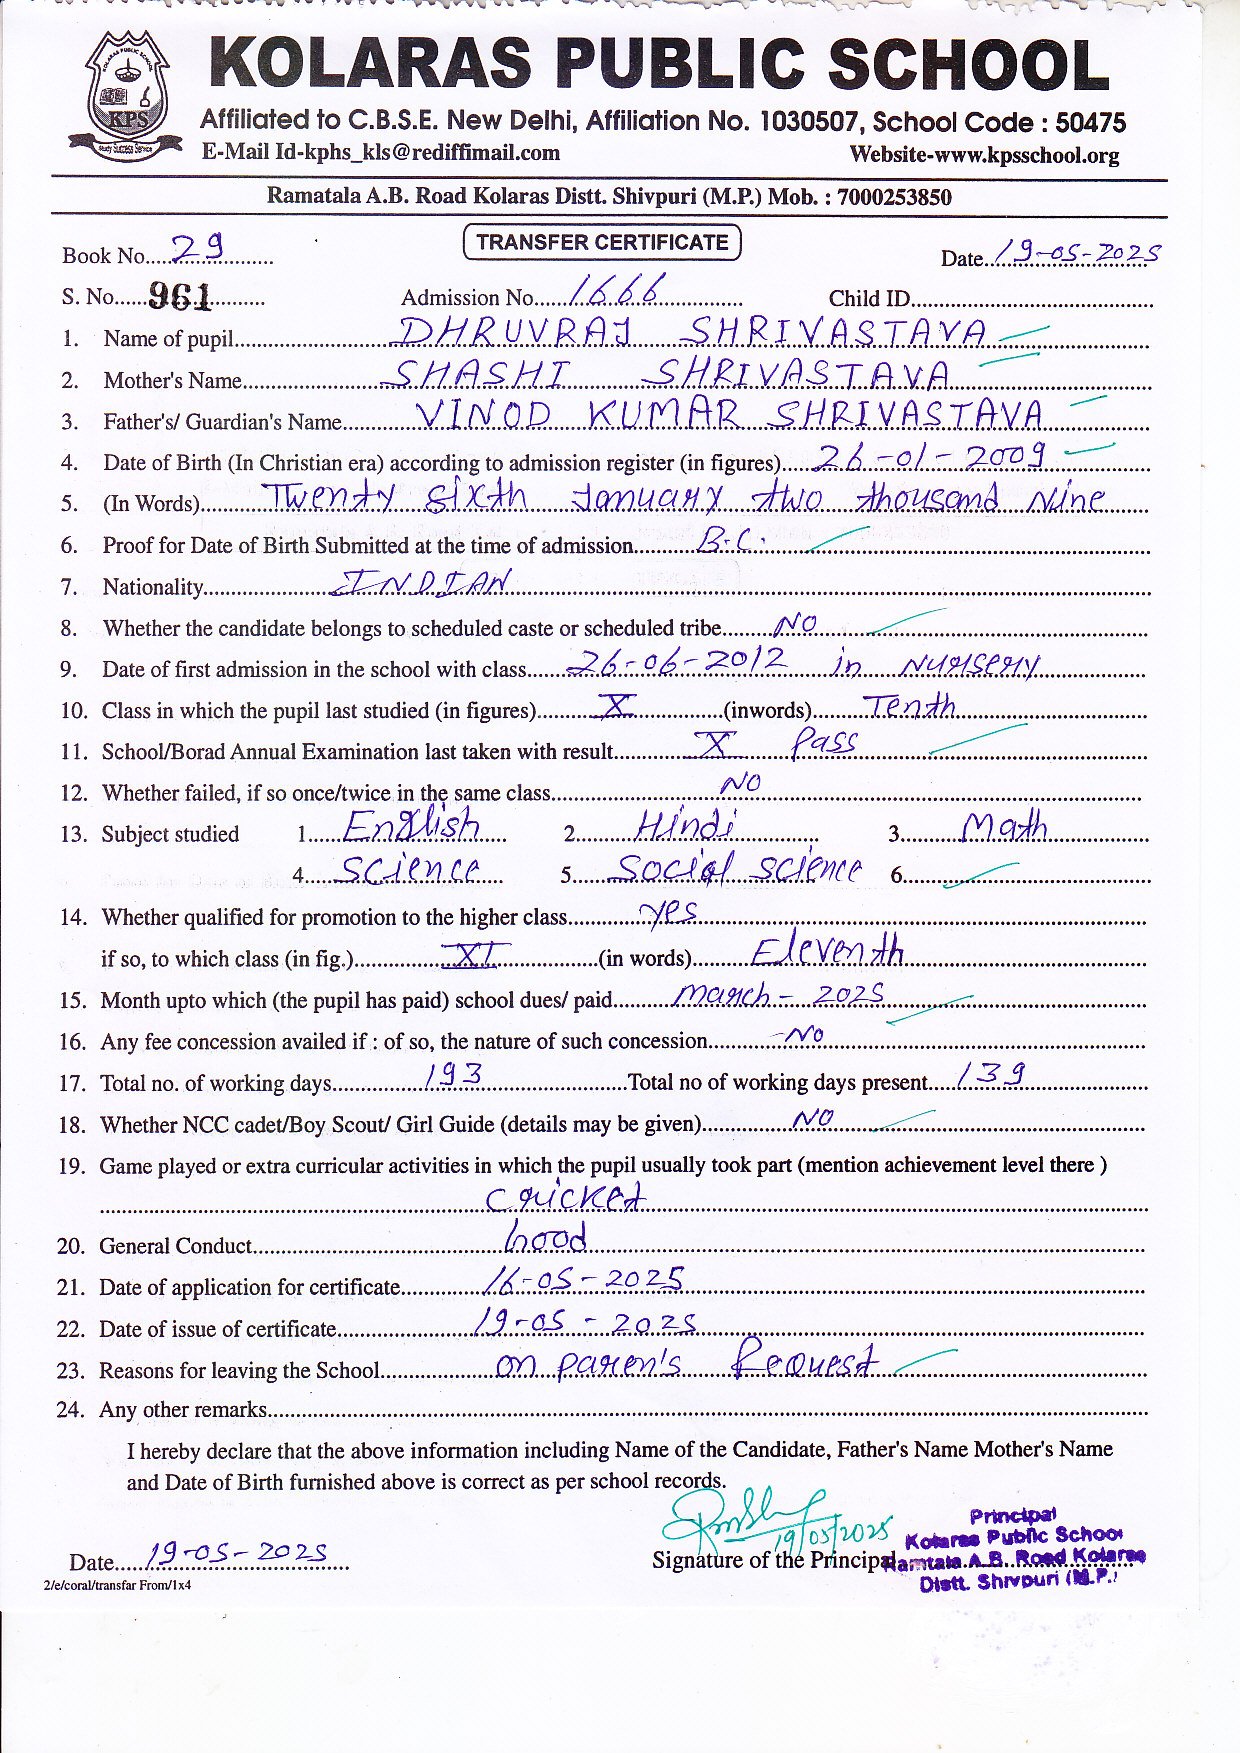 KOLARAS PUBLIC SCHOOL
KOLARAS PUBLIC SCHOOL
KPS
Study Success Service
Affiliated to C.B.S.E. New Delhi, Affiliation No. 1030507, School Code : 50475
E-Mail Id-kphs_kls@rediffimail.com Website-www.kpsschool.org
Ramatala A.B. Road Kolaras Distt. Shivpuri (M.P.) Mob. : 7000253850
TRANSFER CERTIFICATE
Book No.....29.......... Date..19-05-2025
S. No.....961.......... Admission No.....1666.......... Child ID..........
1. Name of pupil..........DHRUVRAJ SHRIVASTAVA
2. Mother's Name..........SHASHI SHRIVASTAVA
3. Father's/ Guardian's Name..........VINOD KUMAR SHRIVASTAVA
4. Date of Birth (In Christian era) according to admission register (in figures).....26-01-2009
5. (In Words)..........Twenty sixth January two thousand Nine
6. Proof for Date of Birth Submitted at the time of admission..........B.C.
7. Nationality..........INDIAN
8. Whether the candidate belongs to scheduled caste or scheduled tribe........NO
9. Date of first admission in the school with class.......26-06-2012 in Nursery
10. Class in which the pupil last studied (in figures)..........X..........(inwords)..........Tenth
11. School/Borad Annual Examination last taken with result..........X Pass
12. Whether failed, if so once/twice in the same class..........NO
13. Subject studied 1.....English..... 2.....Hindi..... 3.....Math
4.....Science..... 5.....Social science 6..........
14. Whether qualified for promotion to the higher class..........yes
if so, to which class (in fig.)..........XI..........(in words)..........Eleventh
15. Month upto which (the pupil has paid) school dues/ paid..........March - 2025
16. Any fee concession availed if : of so, the nature of such concession..........NO
17. Total no. of working days..........193..........Total no of working days present.....139
18. Whether NCC cadet/Boy Scout/ Girl Guide (details may be given)..........NO
19. Game played or extra curricular activities in which the pupil usually took part (mention achievement level there )
..........Cricket..........
20. General Conduct..........Good
21. Date of application for certificate..........16-05-2025
22. Date of issue of certificate..........19-05-2025
23. Reasons for leaving the School..........on paren's Request
24. Any other remarks..........
I hereby declare that the above information including Name of the Candidate, Father's Name Mother's Name
and Date of Birth furnished above is correct as per school records.
19/05/2025
Principal
Kolaras Public School
Date.....19-05-2025 Signature of the Principal Ramtala A.B. Road Kolaras
2/e/coral/transfar From/1x4 Distt. Shivpuri (M.P.)